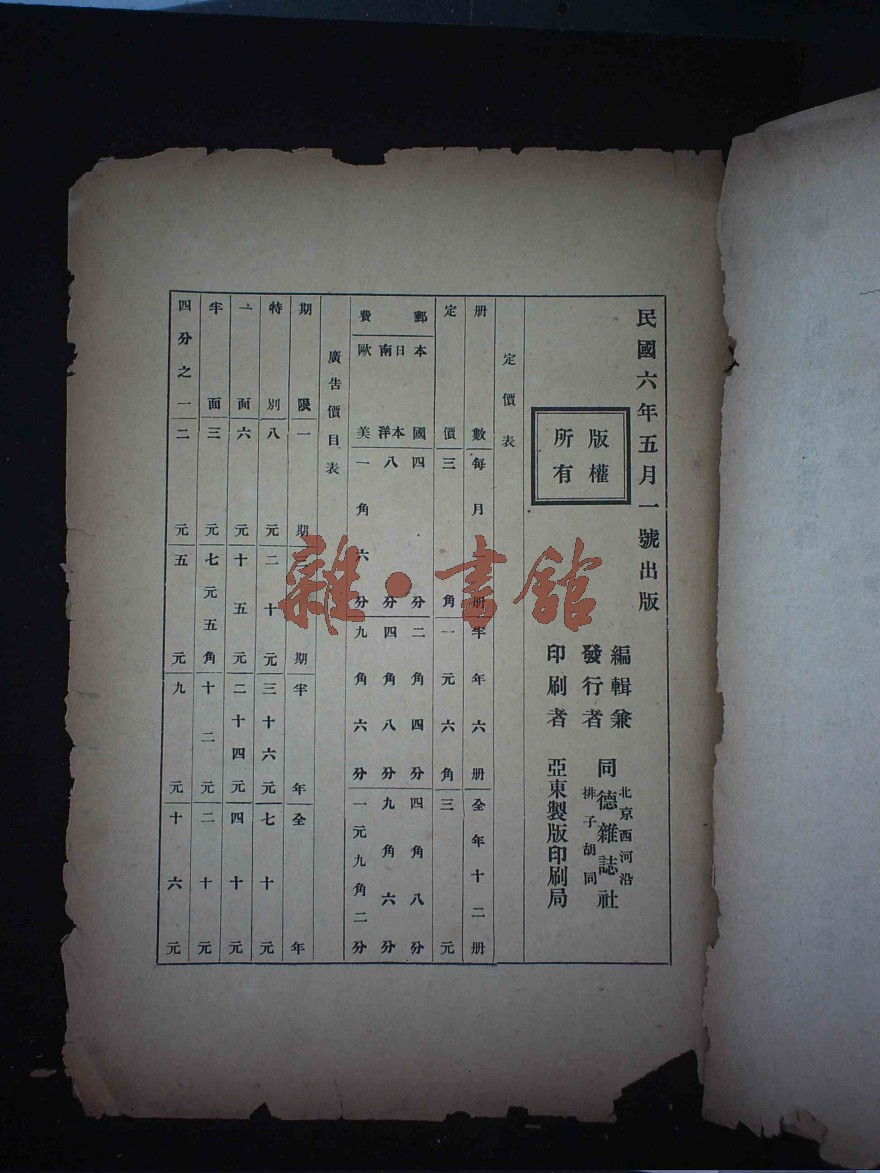 民國六年五月一號出版
版權
所有
編輯兼
發行者
北京西河沿
同德雜誌社
排子胡同
印刷者 亞東製版印刷局
定價表
册數 每月 册 半年六册 全年十二册
定價 三角 一元六角 三元
郵費
本國 四分 二角四分 四角八分
日本 南洋 八分 四角八分 九角六分
歐美 一角六分 九角六分 一元九角二分
廣告價目表
期限 一期 期 半年 全年
特別 八元 二十元 三十六元 七十元
一面 六元 十五元 二十四元 四十元
半面 三元 七元五角 十二元 二十元
四分之一 二元 五元 九元 十六元
雜·書館